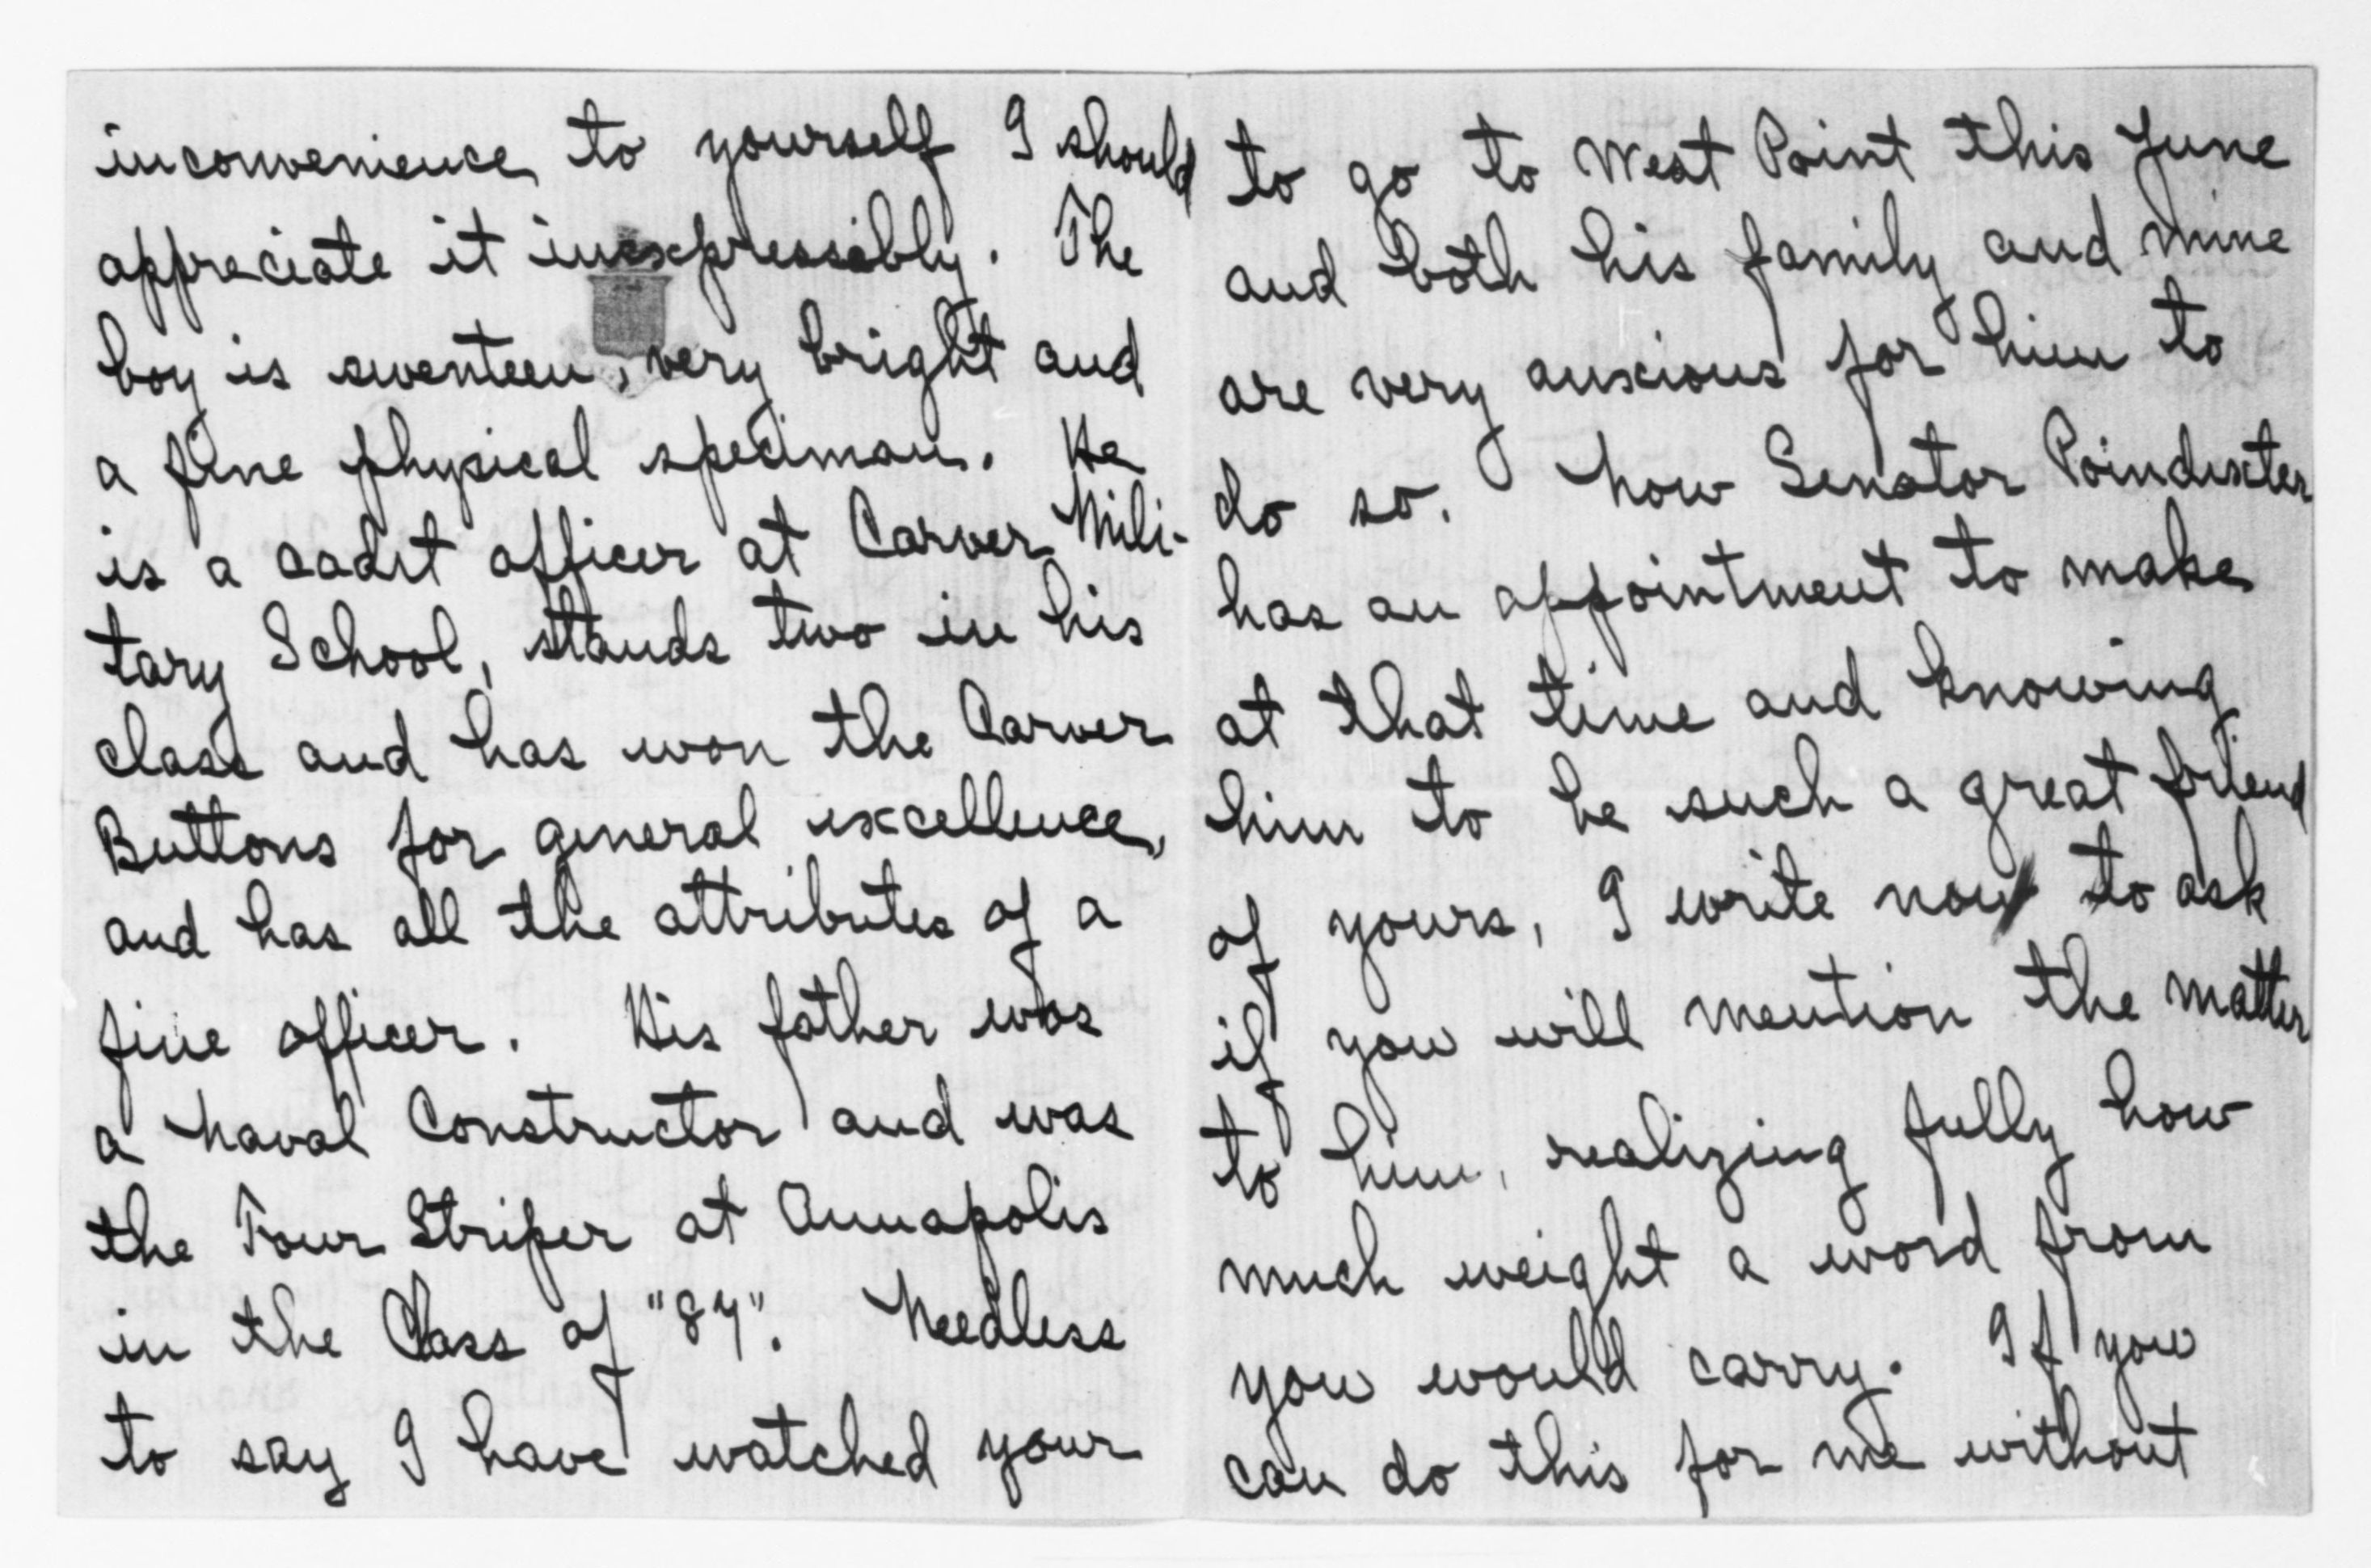 inconvenience to yourself I should
appreciate it inexpressibly. The
boy is seventeen, very bright and
a fine physical speciman. He
is a cadet officer at Carver Mili-
tary School, stands two in his
class and has won the Carver
Buttons for general excellence,
and has all the attributes of a
fine officer. His father was
a Naval Constructor and was
the Four Striper at Annapolis
in the Class of "84". Needless
to say I have watched your
to go to West Point this June
and both his family and mine
are very anxious for him to
do so. Now Senator Poindexter
has an appointment to make
at that time and knowing
him to be such a great friend
of yours, I write now to ask
if you will mention the matter
to him, realizing fully how
much weight a word from
you would carry. If you
can do this for me without